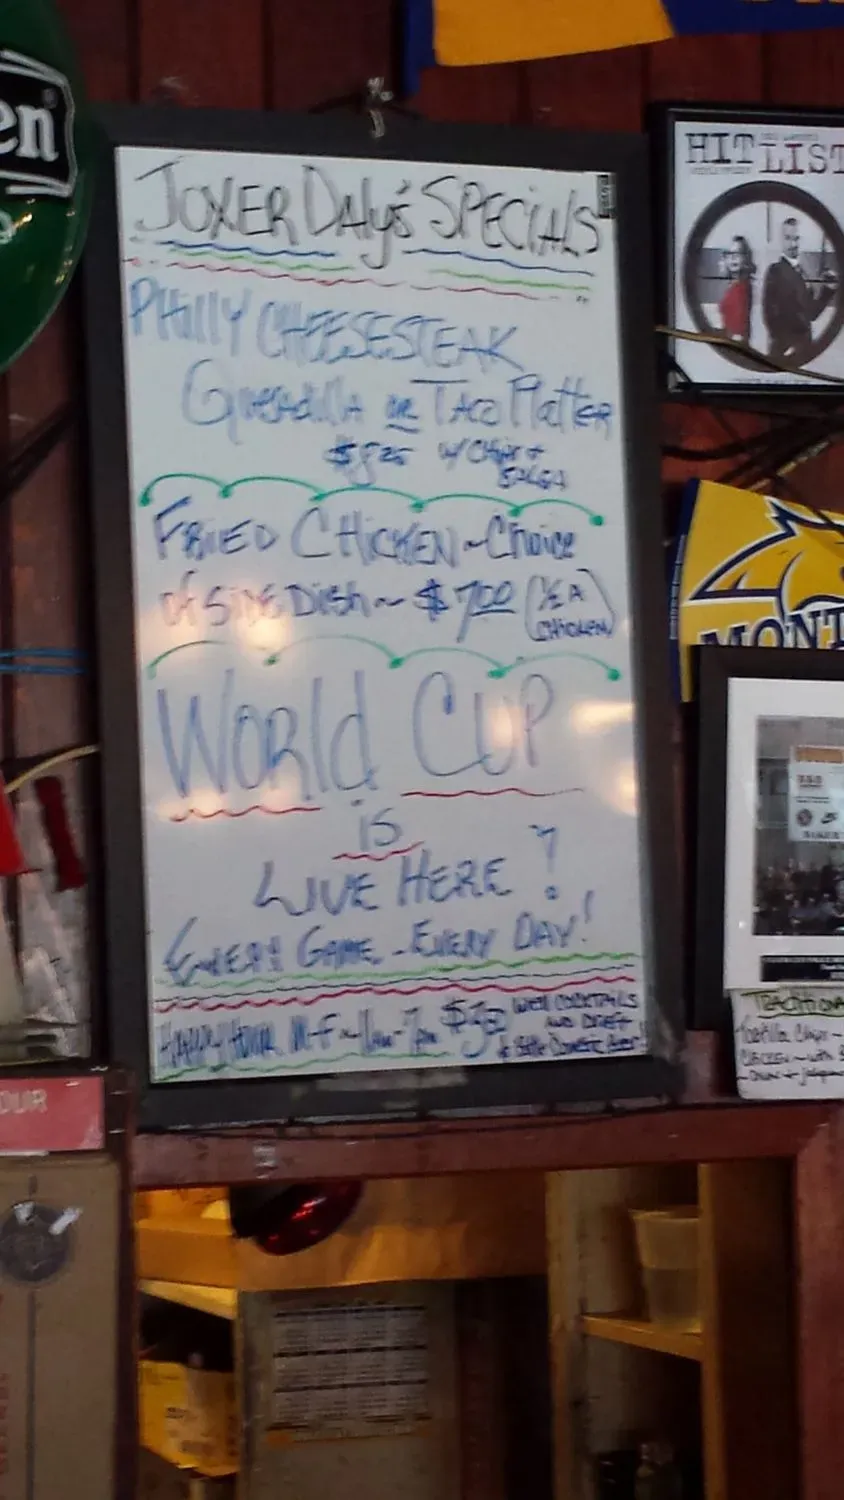 en
HIT LIST
JOXER DALy's SPECIALS
PHILLY CHEESESTEAK
QUESADILLA OR TACO PLATTER
$8.25 W/ CHIPS +
SALSA
FRIED CHICKEN ~ CHOICE
of SIDE DISH ~ $7.00 (1/2 A
CHICKEN)
WORLD CUP
is
LIVE HERE!
EVERY GAME - EVERY DAY!
HAPPY HOUR M-F ~ - 7pm WELL COCKTAILS
AND DRAFT
DOMESTIC BEER!
MONT
TRADITIONA
TORTILLA CHIPS ~
CHICKEN ~ with
OUR